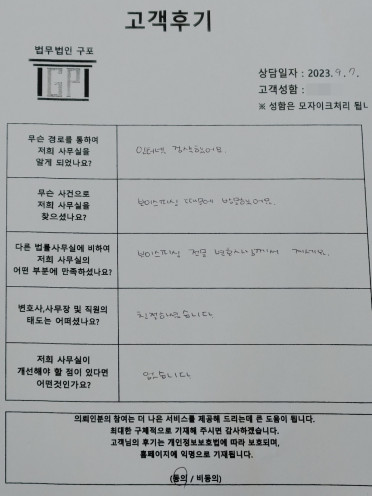 고객후기
법무법인 구포
GP
상담일자 : 2023. 9. 7.
고객성함 :
※ 성함은 모자이크처리 됩니
무슨 경로를 통하여
저희 사무실을
알게 되었나요?
인터넷 검색했어요.
무슨 사건으로
저희 사무실을
찾으셨나요?
보이스피싱 때문에 방문했어요.
다른 법률사무실에 비하여
저희 사무실의
어떤 부분에 만족하셨나요?
보이스피싱 전문 변호사님께서 계세요.
변호사,사무장 및 직원의
태도는 어떠셨나요?
친절하셨습니다.
저희 사무실이
개선해야 할 점이 있다면
어떤것인가요?
없습니다
의뢰인분의 참여는 더 나은 서비스를 제공해 드리는데 큰 도움이 됩니다.
최대한 구체적으로 기재해 주시면 감사하겠습니다.
고객님의 후기는 개인정보보호법에 따라 보호되며,
홈페이지에 익명으로 기재됩니다.
(동의 / 비동의)